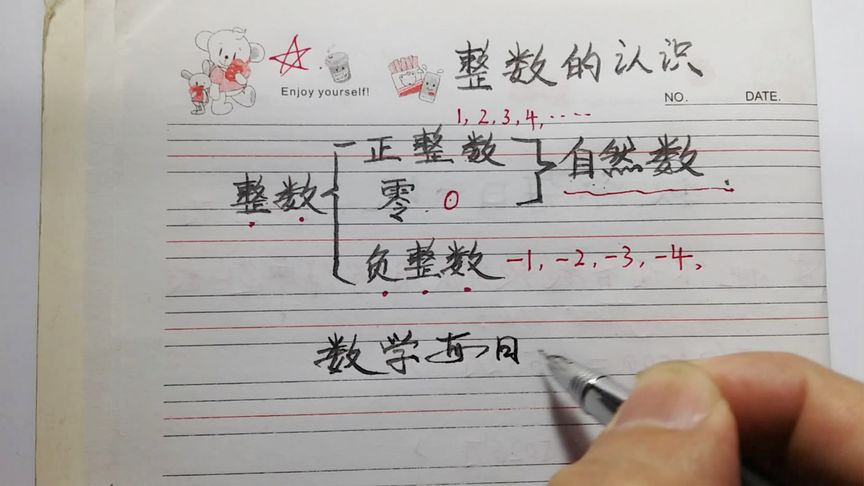 整数的认识
Enjoy yourself!
NO. DATE.
1, 2, 3, 4, ……
正整数
整数 零 0 自然数
负整数 -1, -2, -3, -4,
数学每日